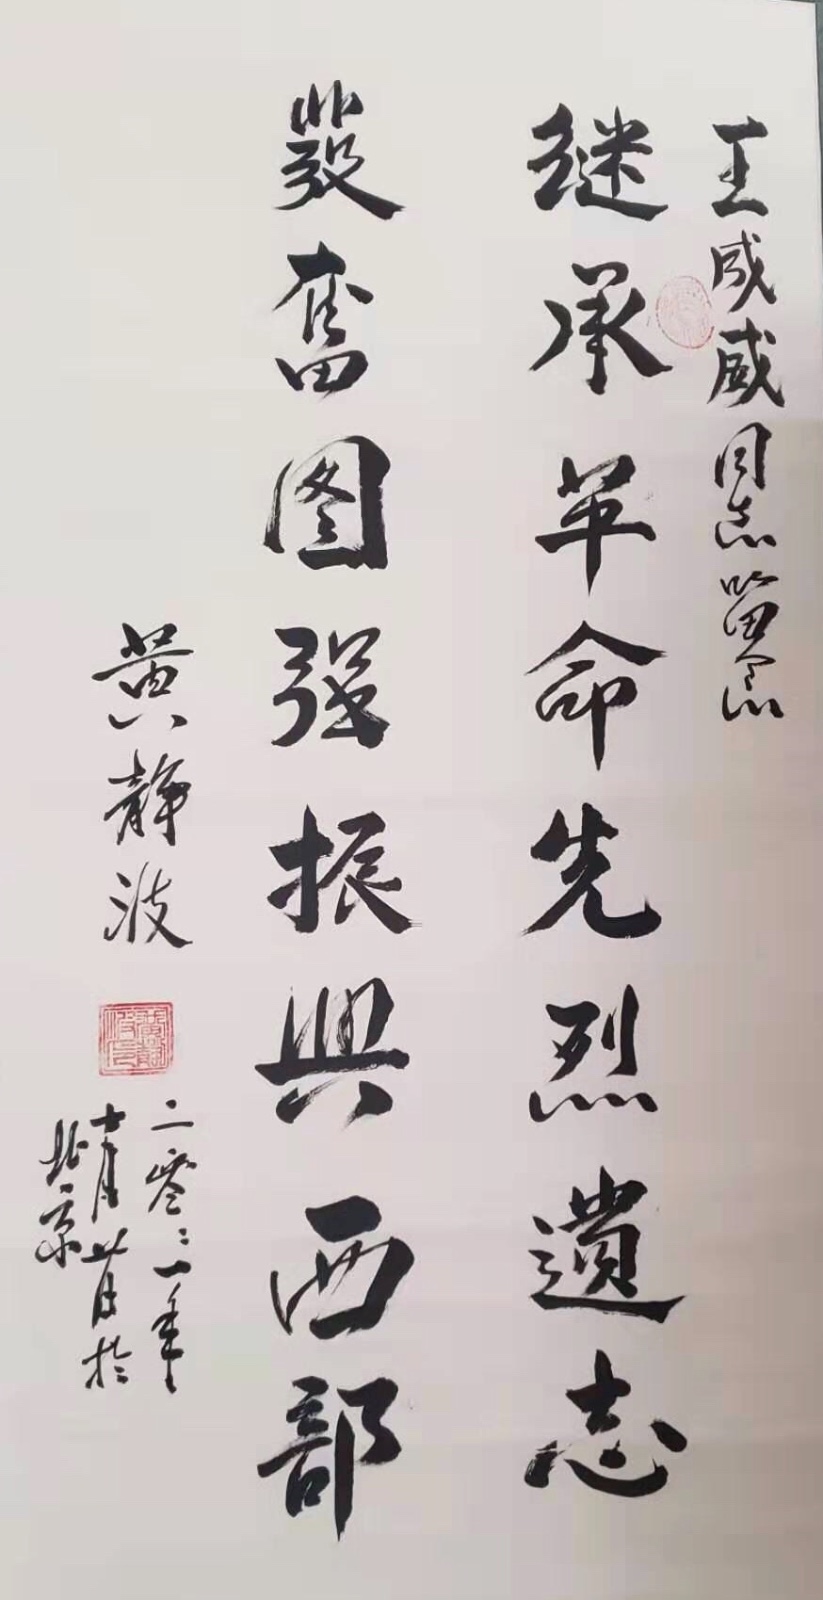 王成威同志留念
继承革命先烈遺志
發奮图强振興西部
黄静波
黄静波印
二零:一年
十一月廿日於
北京